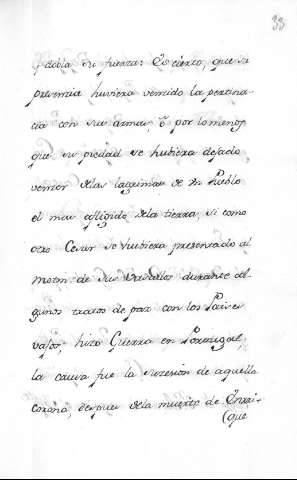 33
q.e debia su fuerza: Es cierto, que su
presencia huviera vencido la pertina-
cia con sus armas, ó por lo menos
que su piedad se hubiera dejado
vencer de las lagrimas de un Pueblo
el mas afligido de la tierra, si como
otro Cesar se hubiera presentado al
motin de sus Vasallos durante al-
gunos tratos de paz con los Paises
vajos, hizo Guerra en Portugal
la causa fue la sucesion de aquella
corona, despues de la muerte de Enrri-
(que